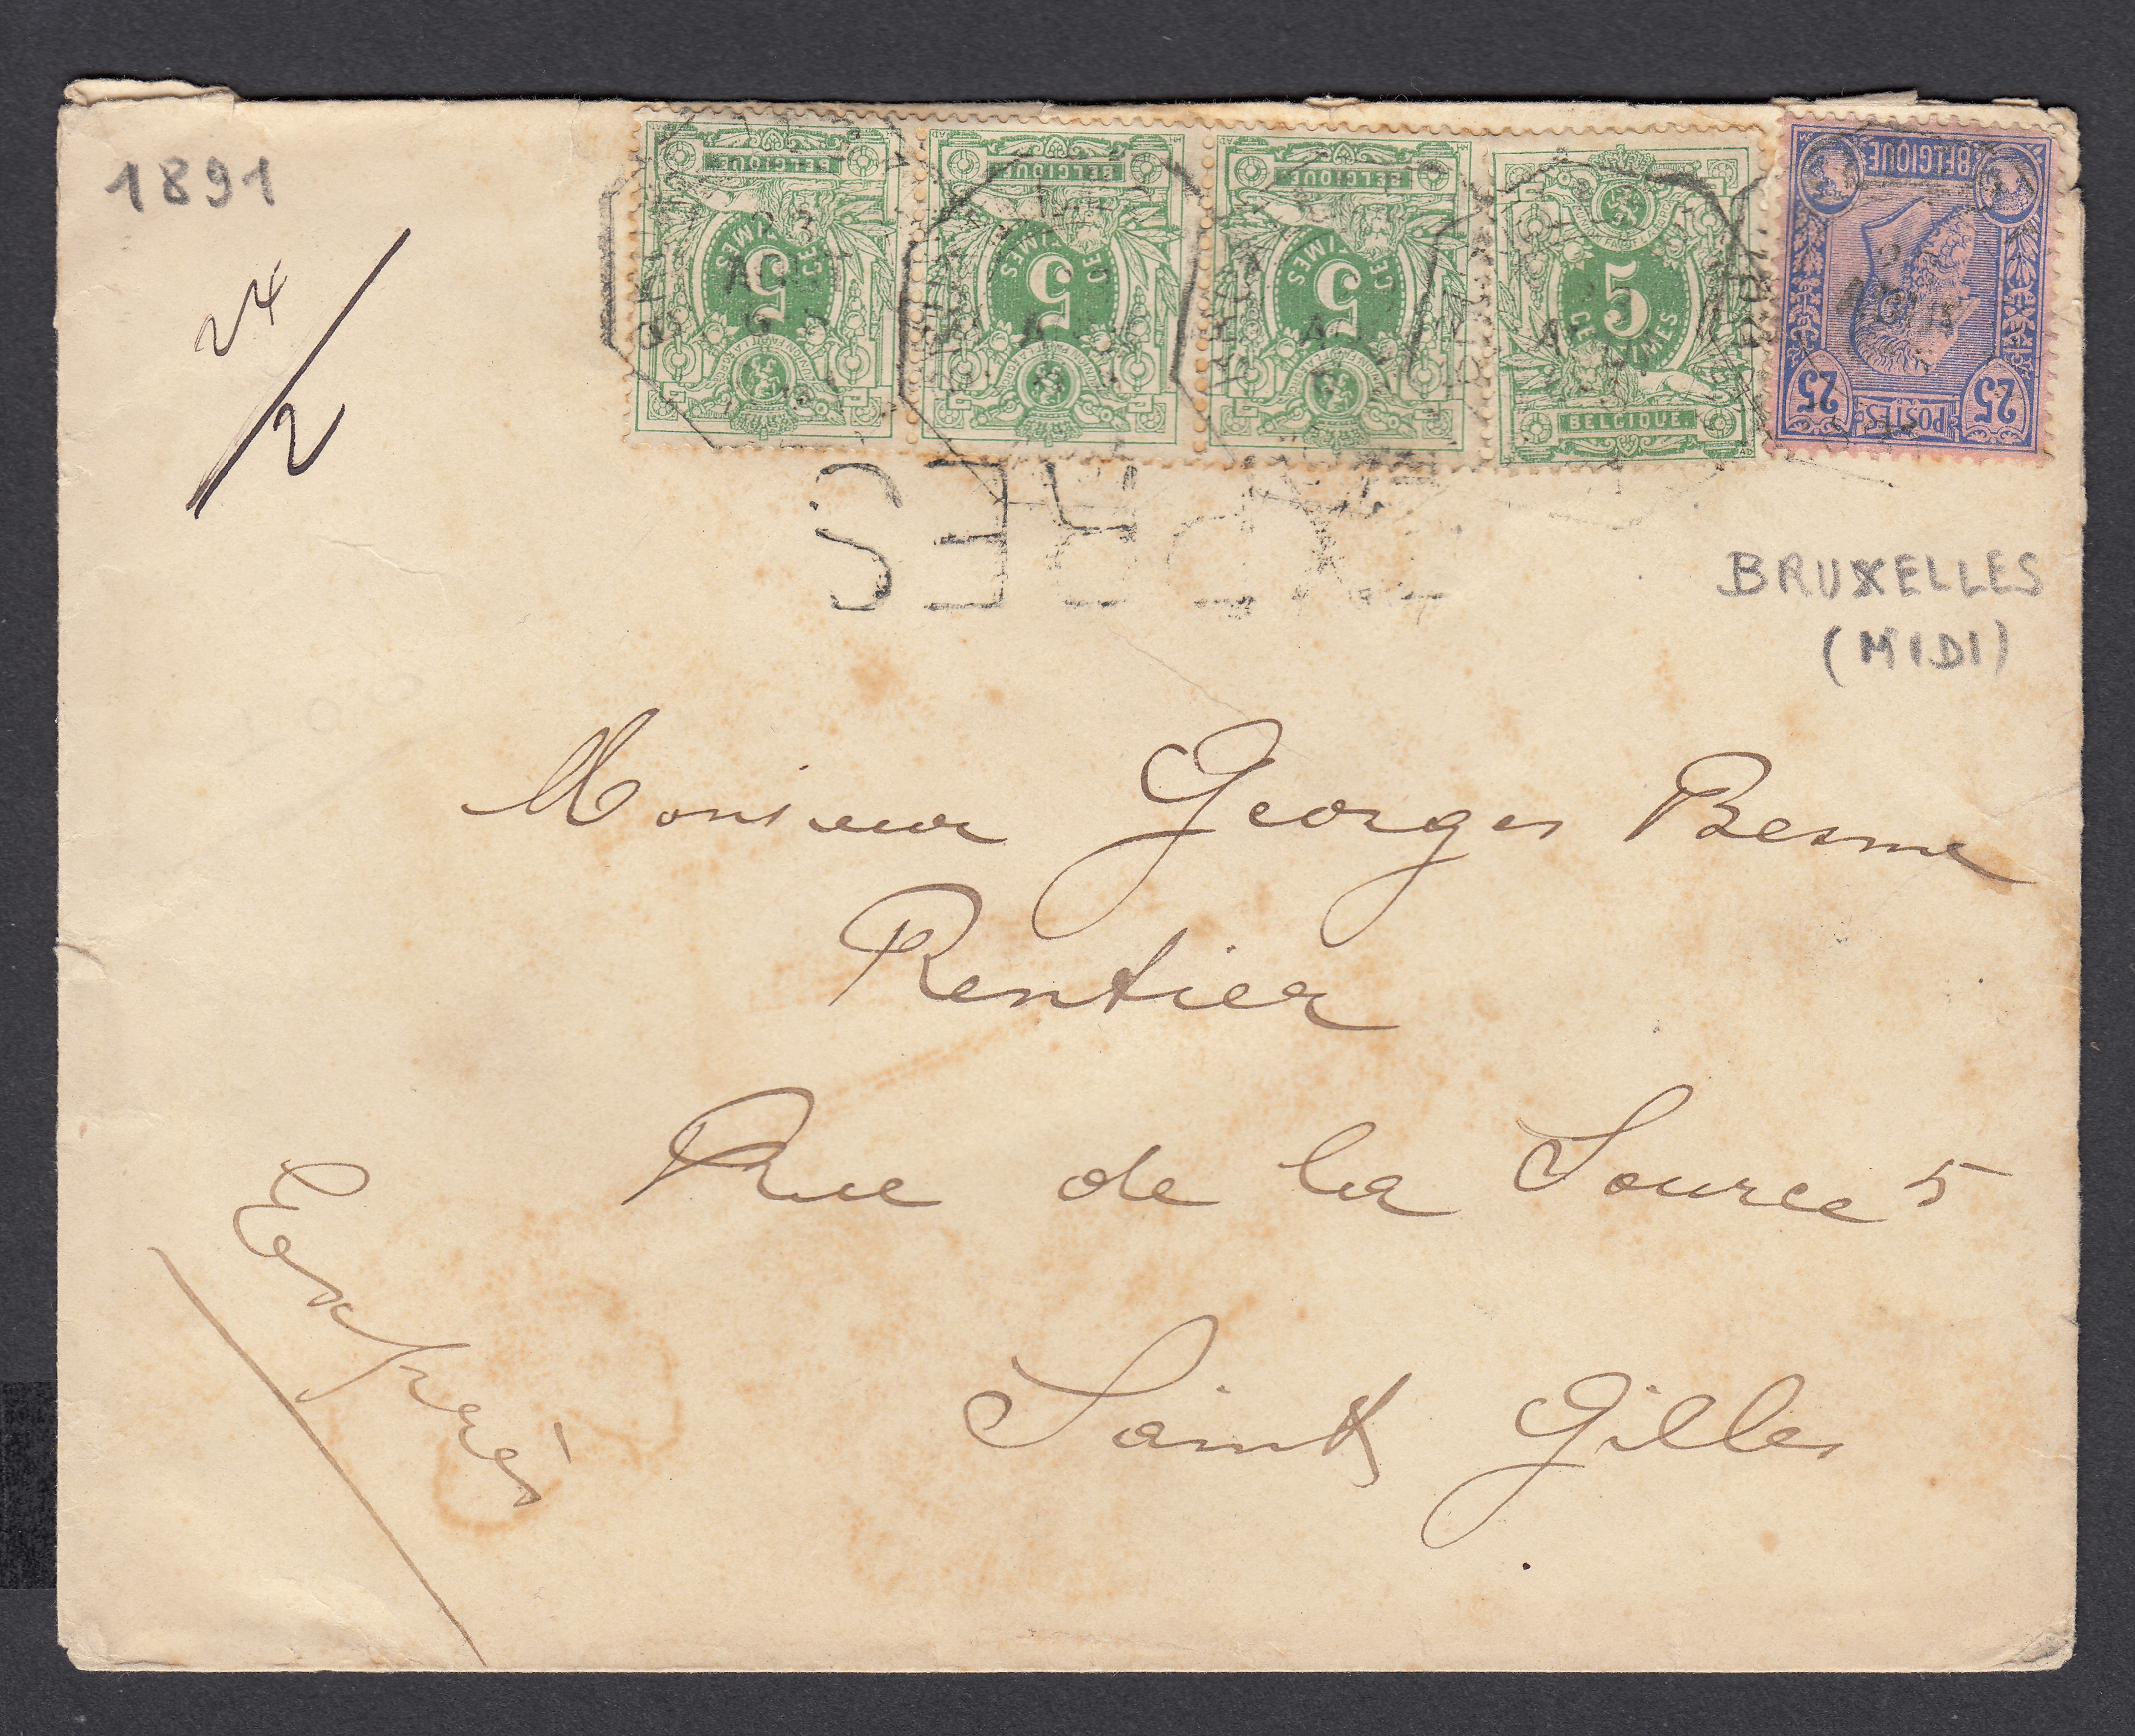 1891
24
2
BELGIQUE
5
CENTIMES
BELGIQUE
5
CENTIMES
BELGIQUE
5
CENTIMES
5
CENTIMES
BELGIQUE
BELGIQUE
25 POSTES 25
23
AOUT
BRUXELLES
(MIDI)
Monsieur Georges Besme
Rentier
Rue de la Source 5
Saint Gilles